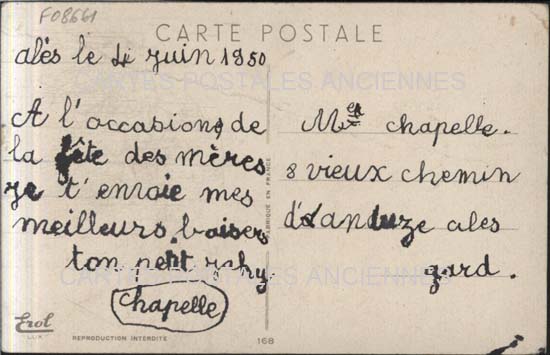 F08661
CARTE POSTALE
alès le 4 juin 1950
CARTES POSTALES ANCIENNES
A l'occasion de
la fête des mères
je t'envoie mes
meilleurs baisers
ton petit
Chapelle
Mme chapelle.
8 vieux chemin
d'anduze ales
gard.
CARTES POSTALES ANCIENNES
FABRIQUÉ EN FRANCE
Erol
LUX
REPRODUCTION INTERDITE
168